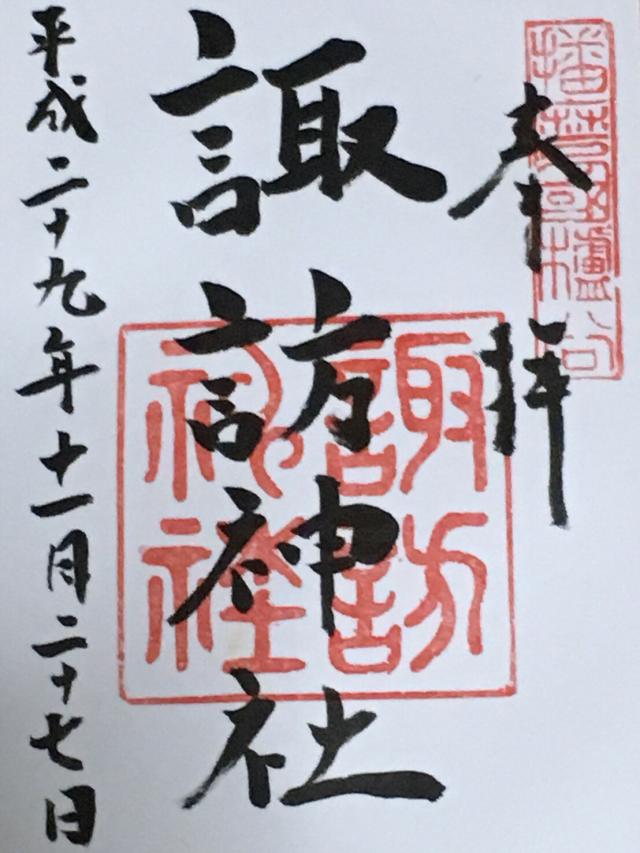 播磨國櫨谷
奉拝
諏訪神社
諏訪神社
平成二十九年十一月二十七日